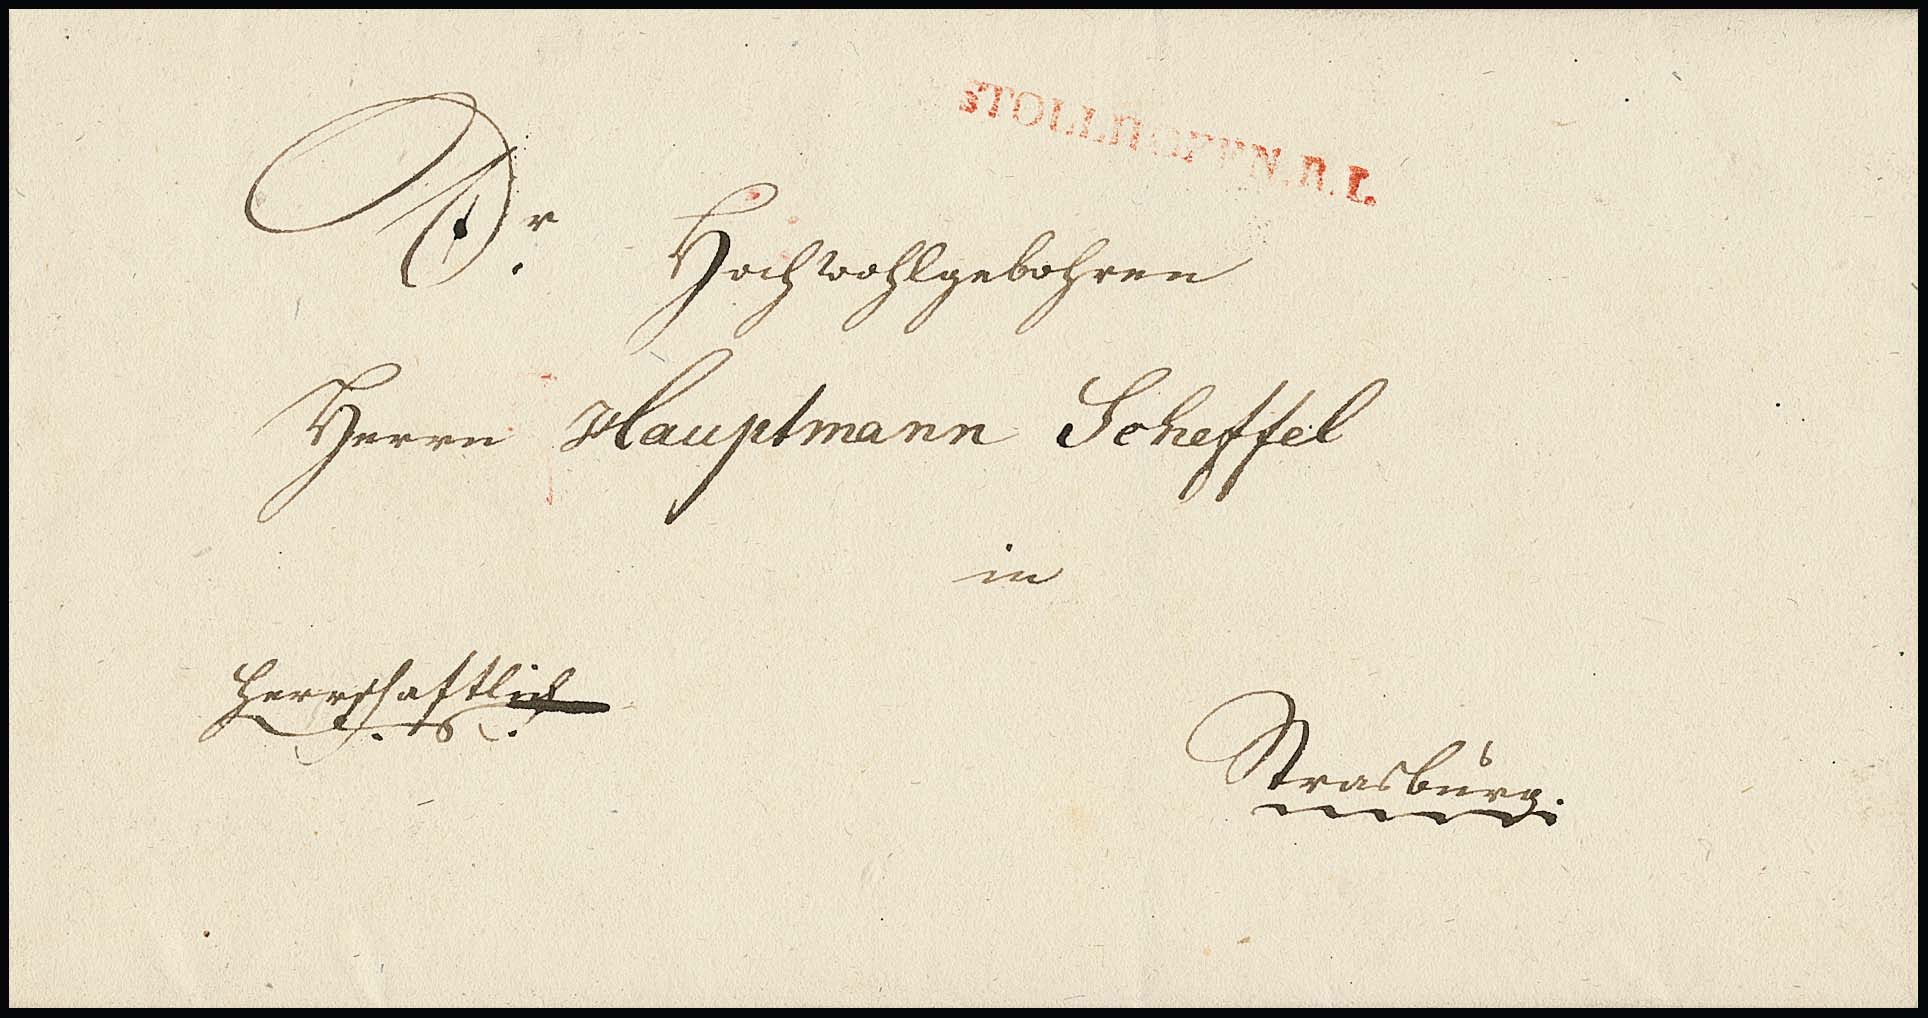 STOLLHOFEN. R. I.
Sr. Hochwohlgebohren
Herrn Hauptmann Scheffel
in
Herrschaftlich
D. S.
Strasburg.